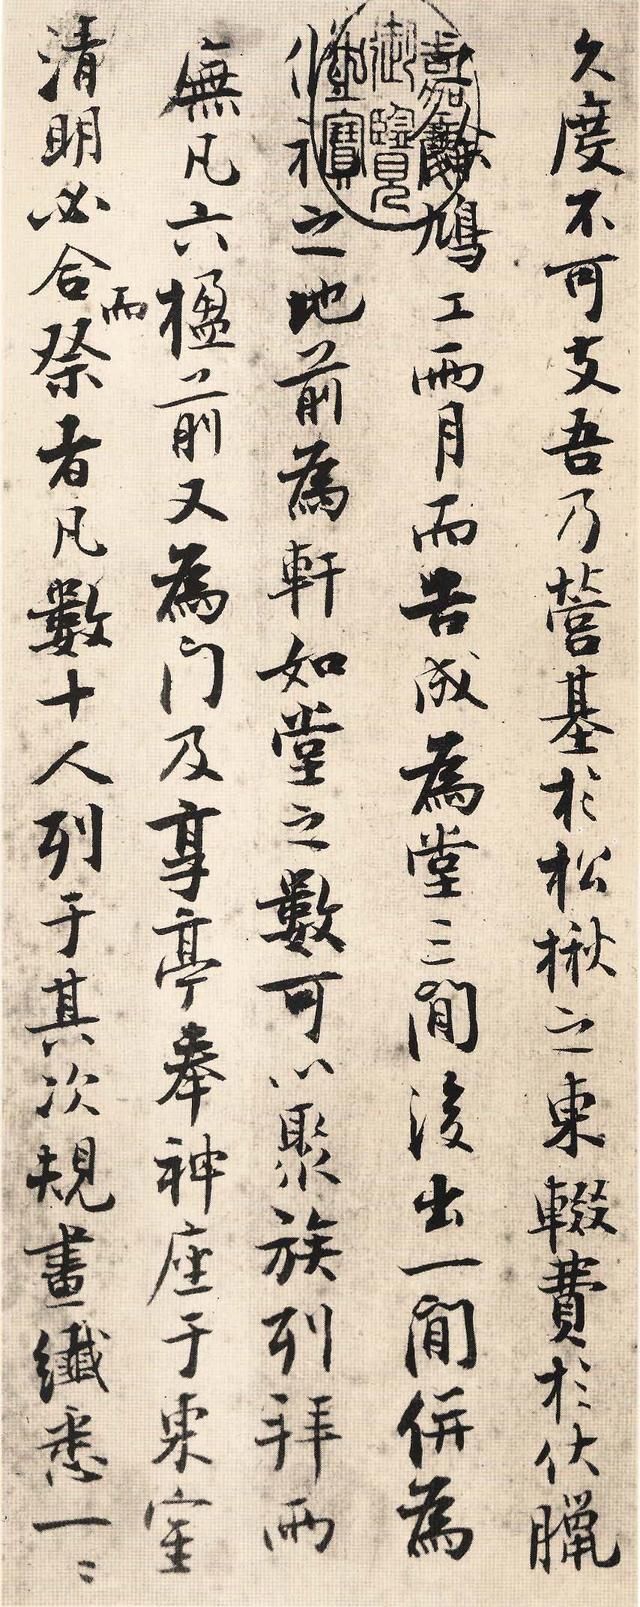 久度不可支吾乃營基於松楸之東輟費於伏臘
鳩工兩月而告成為堂三間後出一間併為
之地前為軒如堂之數可以聚族列拜兩
廡凡六楹前又為門及享亭奉神座于東室
清明必合而祭者凡數十人列于其次規畫纖悉一〻
嘉慶御覽之寶